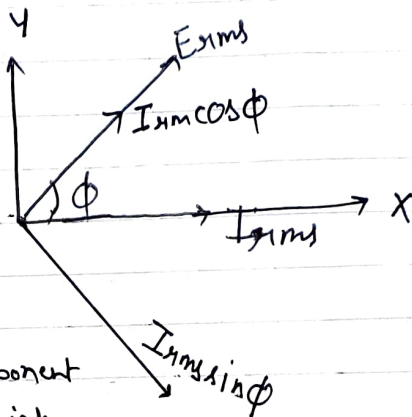 Y
Erms
Irm cosϕ
ϕ
X
Irms
Irms sinϕ
ponent